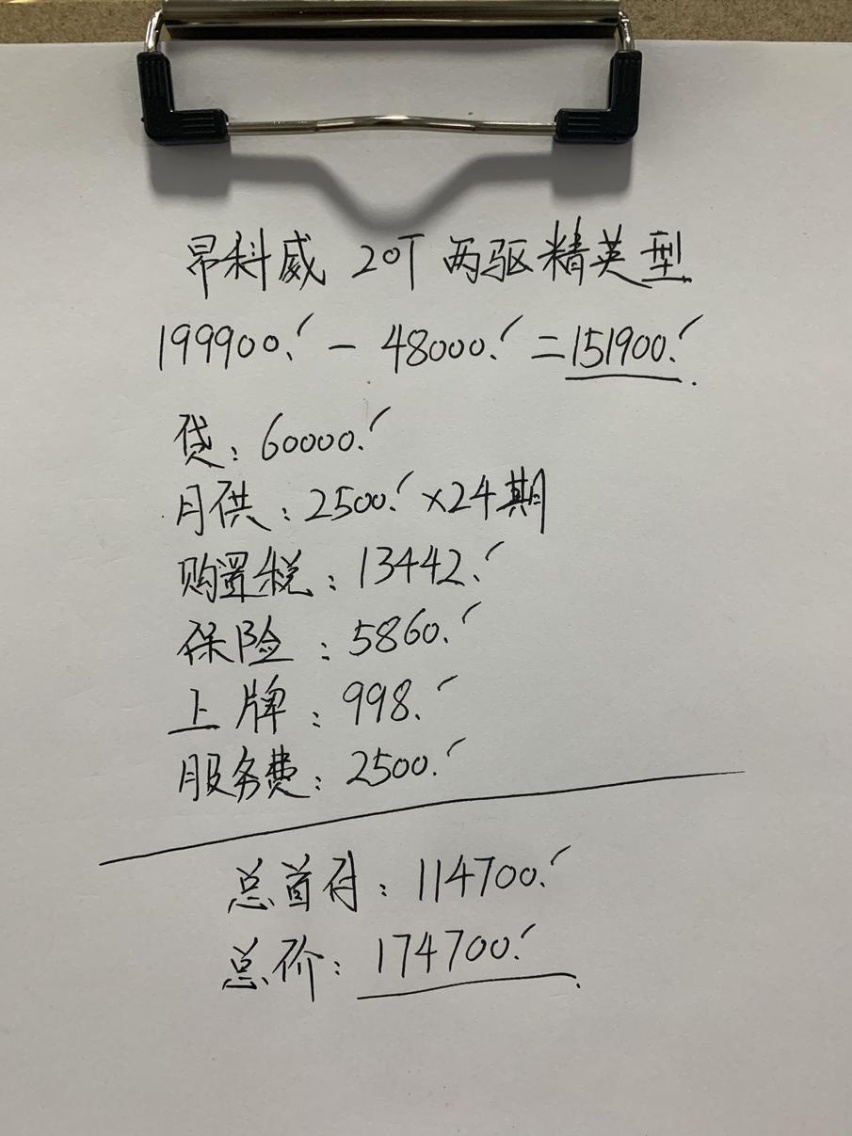 昂科威 20T 两驱精英型
199900.' - 48000.' = 151900.'
贷: 60000.'
月供: 2500.' x24期
购置税: 13442.'
保险: 5860.'
上牌: 998.'
服务费: 2500.'
总首付: 114700.'
总价: 174700.'